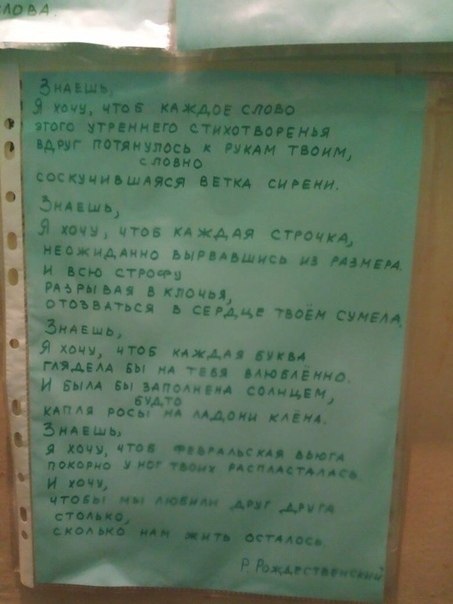 ЛОВА.
Знаешь,
Я хочу, чтоб каждое слово
этого утреннего стихотворенья
вдруг потянулось к рукам твоим,
словно
соскучившаяся ветка сирени.
Знаешь,
Я хочу, чтоб каждая строчка,
неожиданно вырвавшись из размера
и всю строфу
разрывая в клочья,
отозваться в сердце твоём сумела.
Знаешь,
Я хочу, чтоб каждая буква
глядела бы на тебя влюблённо.
И была бы заполнена солнцем,
будто
капля росы на ладони клёна.
Знаешь,
я хочу, чтоб февральская вьюга
покорно у ног твоих распласталась.
И хочу,
чтобы мы любили друг друга
столько,
сколько нам жить осталось
Р. Рождественский